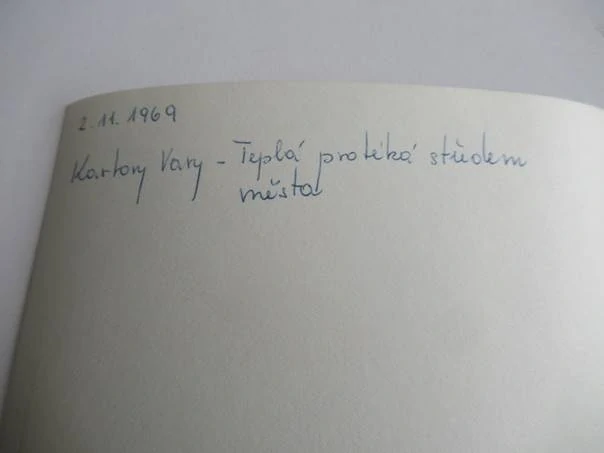 2.11.1969
Karlovy Vary - Teplá protéká středem
města